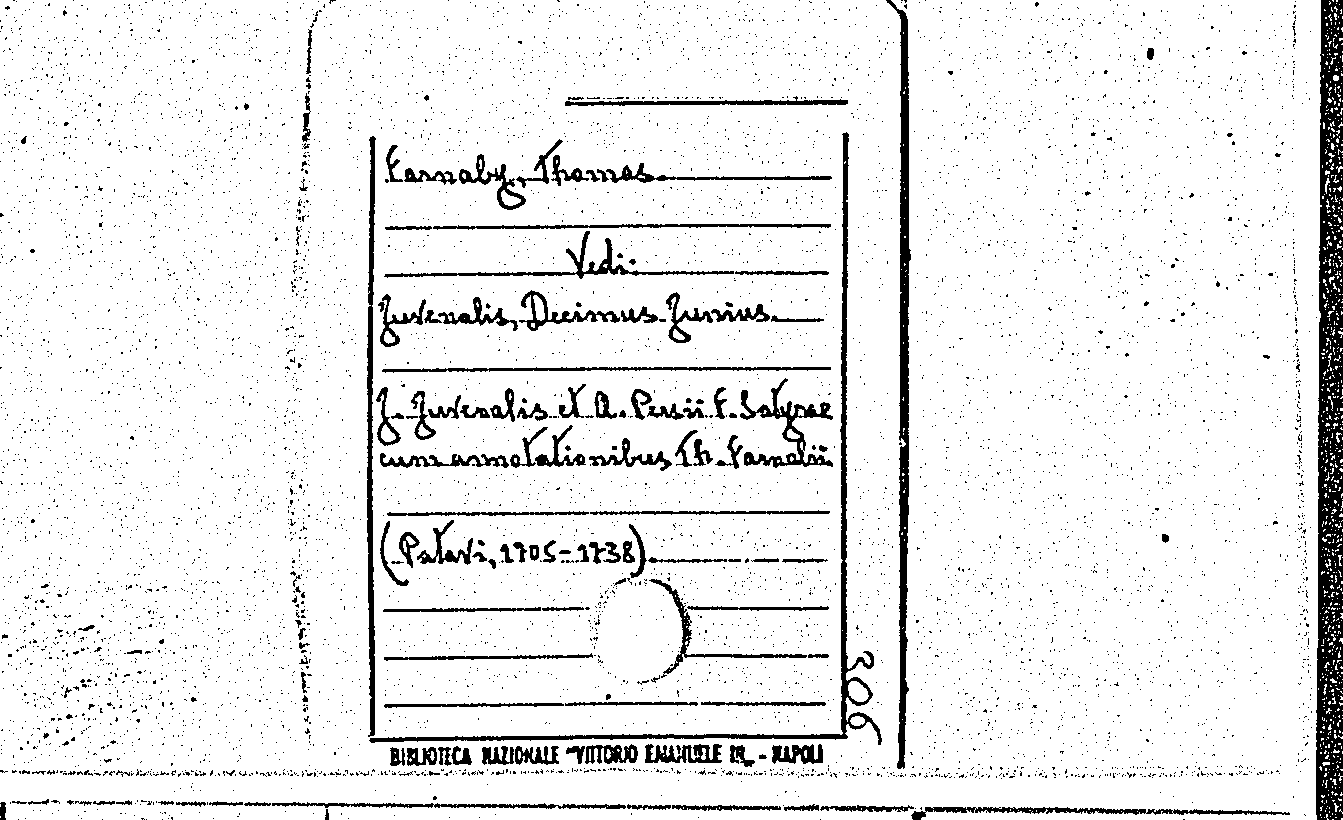 Farnaby, Thomas.
Vedi:
Juvenalis, Decimus Junius.
J. Juvenalis et A. Persii F. Satyrae
cum annotationibus Th. Farnabii.
(Patavi, 1705-1738).
306
BIBLIOTECA NAZIONALE "VITTORIO EMANUELE III„ - NAPOLI